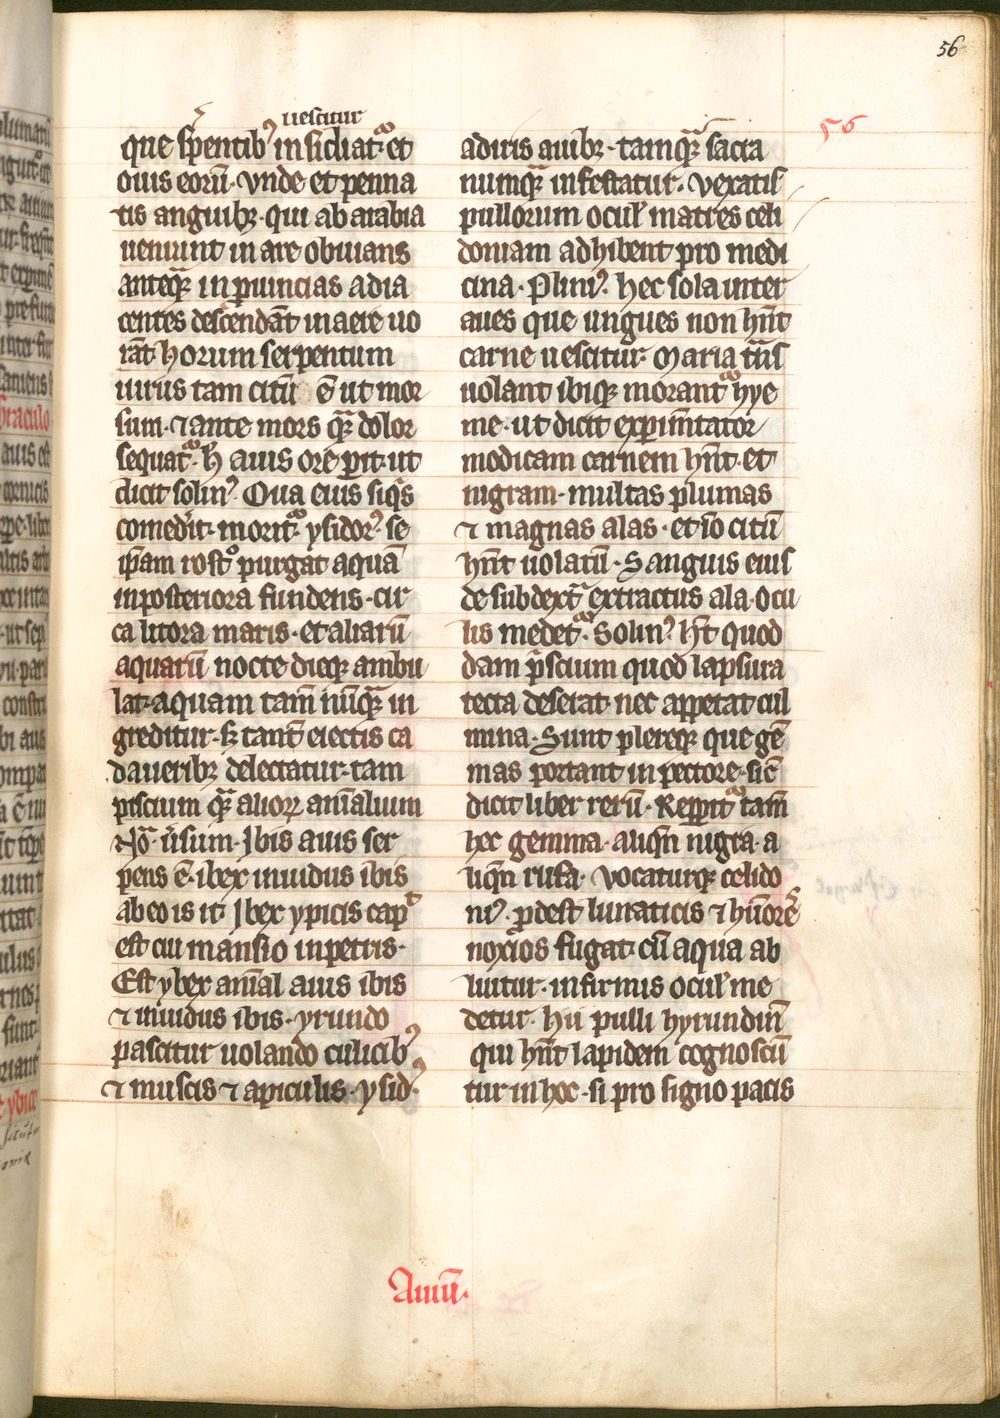 56
56
uescitur
que s̄pentib᷒ insidiat᷑ et
ouis eorū· vnde et penna
tis anguibꝫ· qui ab arabia
ueniunt in are obuians
anteqͣ in ꝓuincias adia
centes descendāt in aere uo
rāt horum serpentum
uirus tam citū ē ut mor
sum· ⁊ ante mors qͣ dolor
sequat᷑· h̄ auis ore ꝑit· ut
dicit solin᷒· Oua eius siqͥs
comed̓it· morit᷑ ysidor᷒· se
ip̄am rostͦ purgat aquā
in posteriora fundens· cir
ca litora maris· et aliarū
aquarū nocte dieqꝫ ambu
lat· aquam tam̄ nūqͣ in
greditur· sꝫ tant̄ eiectis ca
daueribꝫ delectatur· tam
piscium qͣ alioꝝ anīalium
Noͣ· ūsum· Ibis auis ser
pens ē· ibex inuidus ibis
ab eo is it· Iber ypicis cap̄
est cui mansio in petris·
Est yber anīal auis ibis
⁊ inuidus ibis· yrundo
pascitur uolando culicib᷒
⁊ muscis ⁊ apiculis· ysid᷒·
a diris auibꝫ· tamqͣ sacra
numqͣ infestatur· vexatis
pullorum ocul̓ matres celi
doniam adhibent pro medi
cina· Plini᷒· hec sola inter
aues que ungues non hn̄t
carne uescitur· Maria tn̄s
uolant ibiqꝫ morant᷑ hye
me· ut dicit experim̄tator
modicam carnem hn̄t· et
nigram· multas plumas
⁊ magnas alas· et iō citū
hn̄t uolatū· Sanguis eius
de sub dextͣ extractus ala· ocu
lis medet᷑· Solin᷒ ht̄ quod
dam p̄scium quod lapsura
tecta deserat nec appetat cul
mina· Sunt plereqꝫ que gē
mas portant in pectore· sic̄
dicit liber rerū· Repperit᷑ tam̄
hec gemma· aliqn̄ nigra· a
liqn̄ rufa· vocaturqꝫ celido
ni᷒· ꝓdest lunaticis ⁊ hūore
noxios fugat· cū aqua ab
luitur· infirmis ocul̓ me
detur· hii pulli hyrundin̄
qui hn̄t lapidem cognoscū
tur in hoc· si pro signo pacis
Auiū·